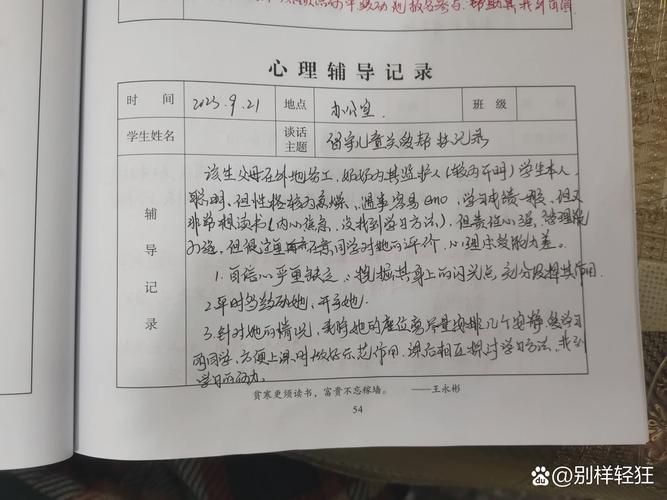 心理辅导记录
时 间 2023.9.21 地点 办公室 班 级
学生姓名 谈话主题 留守儿童关爱帮扶记录
辅导记录
该生父母在外地务工，奶奶为其监护人（较为开明）学生本人
聪明，但性格较为急燥，遇事容易emo，学习成绩一般，但又
非常想读书（内心焦急，没找到学习方法），但责任心强，管理能
力强，但很在意同学对她的评价，心理承受能力差。
1.自信心严重缺乏，挖掘其身上的闪光点，充分发挥其作用
2.平时多鼓励她，开导她！
3.针对她的情况，我将她的座位尽量安排几个安静爱学习
的同学，方便上课时做好示范作用，课后相互探讨学习方法，找到
学习的动力。
贫寒更须读书，富贵不忘稼墙。 ——王永彬
54
别样轻狂